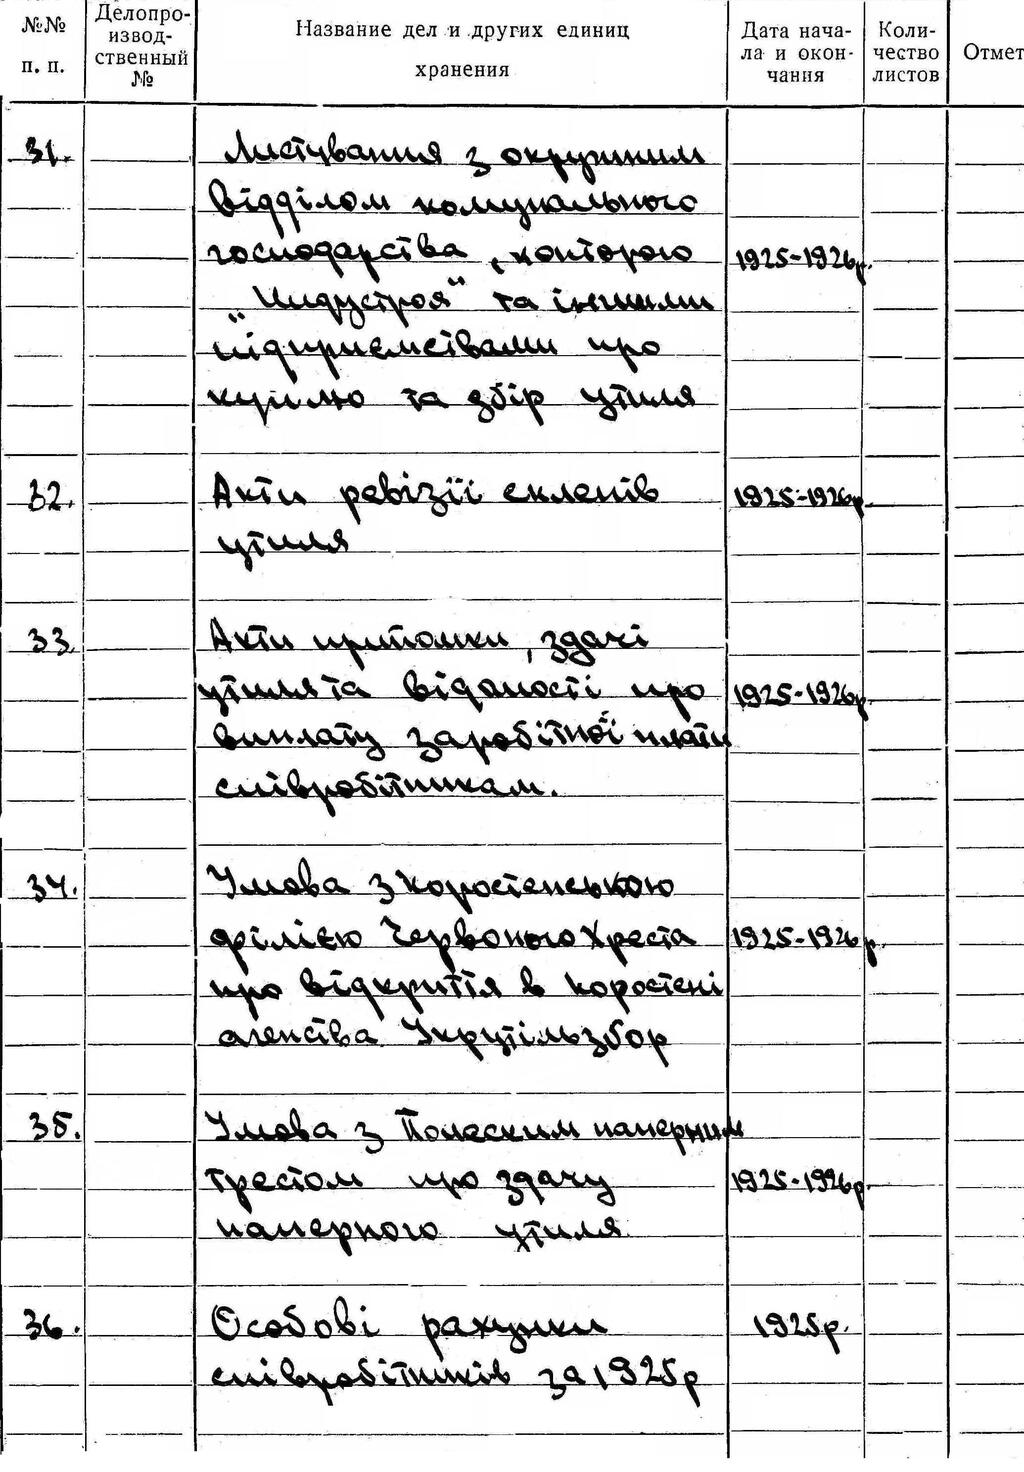 №№ п. п.
Делопроизводственный №
Название дел и других единиц хранения
Дата начала и окончания
Количество листов
Отмет
31.
Листування з окружним
відділом комунального
господарства, конторою
1925-1926р.
„Индустроя" та іншими
підприємствами про
куплю та збір утиля
32.
Акти ревізії склепів
1925-1926р.
утиля
33.
Акти прийомки, здачі
утиля та відомості про
1925-1926р.
виплату заробітної плати
співробітникам.
34.
Умова з Коростенською
філією Червоного Хреста
1925-1926р.
про відкриття в Коростені
агенства Укрутільзбор
35.
Умова з Полеским паперним
трестом про здачу
1925-1926р.
паперного утиля
36.
Особові рахунки
1925р.
співробітників за 1925р